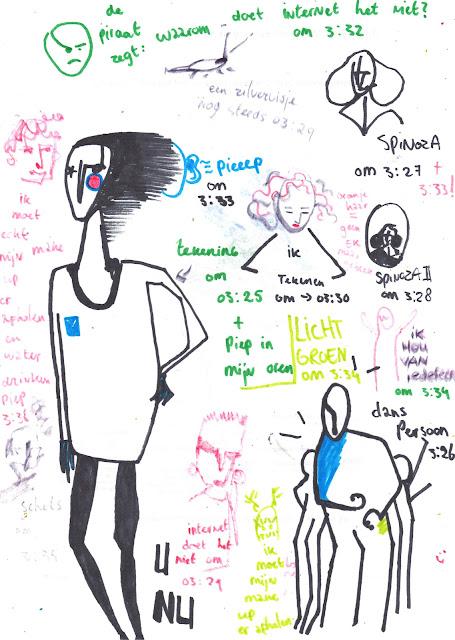 de
piraat
zegt:
waarom doet internet het niet?
om 3:32
een zilvervisje
nog steeds 03:29
SPINOZA
om 3:27 +
3:33!
= pieeep
om
3:33
ik
moet
echt
mijn make
up
er
afhalen
en
water
drinken
Piep
3:36
tekening
om
03:25
+
Piep in
mijn oren
oranje
haar
=
geen
ik
Tekenen
om → 03:30
SPINOZA II
om 3:28
LICHT
GROEN
om 3:34
ik
HOU
VAN
om 3:34
dans
persoon
3:26
schets
om
internet
doet het
niet om
03:29
U
NU
ik
moet
mijn
make
up
er afhalen